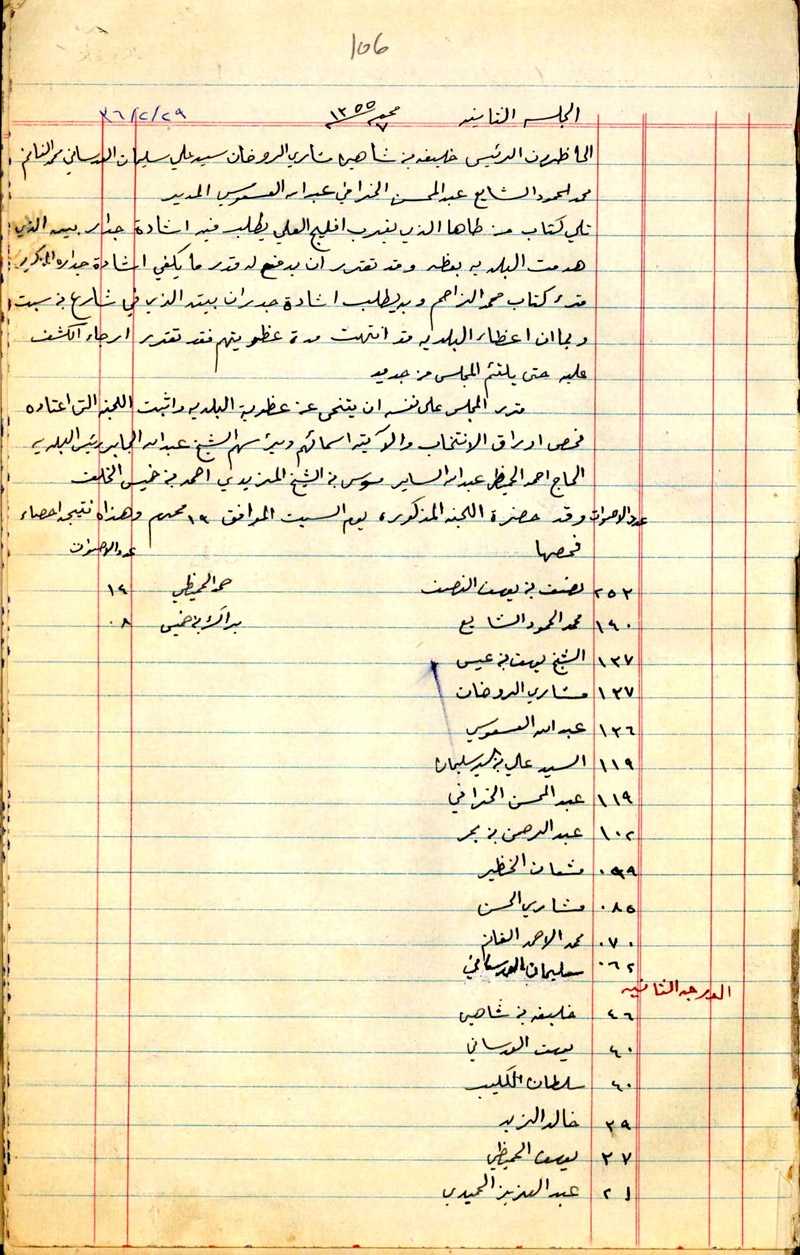 106
الجلسه الثانيه ٧ محرم ١٣٥٥ ٣٦/٢/٢٩
الحاظرون الرئيس خليفه بن شاهين مشاري الروضان سيد علي سليمان العدساني محمد الغانم
محمد الحمود الشايع عبد المحسن الخرافي عبد الله العسعوسي المدير
تلي كتاب من طاها الذي يطلب فيه اشادة جدار بيته الذي
هدمت البلديه بعظه وقد تقرير ان يدفع له قدر ما يكفي اشادة جداره المذكور
قدم كتاب حمد المزاحم وبه يطلب اشادة جدران بيته الذي في شارع بن سبت
وبما ان اعظاء البلديه قد انتهت مدة عظويتهم فقد تقرير ارجاء الكشف
عليه حتى يلتئم المجلس من جديد
قرر المجلس على نفسه ان يتنحى عن عظوية البلديه واثبت اللجنه التي اعتاده
فحص اوراق الانتخاب والآتيه اسمائهم ويرئسهم الشيخ عبد الله الجابر رئيس البلديه
الحاج احمد الحميظي عبد الله الساير موسى بن الشيخ المزيدي احمد بن خميس الخلف
عدد الاصوات وقد حضرة اللجنه المذكوره يوم السبت الموافق ١٩ محرم وهذاه نتيجه احصاء
فحصها عدد الاصوات
٢٥٣ نصف بن يوسف النصف حمد الحميظي ١٤
١٩٠ محمد الحمود الشايع براك بن خميس ٠٨
١٣٧ الشيخ يوسف بن عيسى
١٣٧ مشاري الروضان
١٣٦ عبد الله العسعوسي
١١٩ السيد علي بن السيد سليمان
١١٩ عبد المحسن الخرافي
١٠٢ عبد الرحمن بن بحر
٠٩٩ مشعان الخظير
٠٨٥ مشاري الحسن
٠٧٠ محمد الاحمد الغانم
٠٦٢ سليمان العدساني
الدرجه الثانيه
٤٦ خليفه بن شاهين
٤٠ يوسف العدساني
٤٠ سلطان الكليب
٣٩ خالد الزيد
٣٧ يوسف الحميظي
٢١ عبد العزيز الحميدي